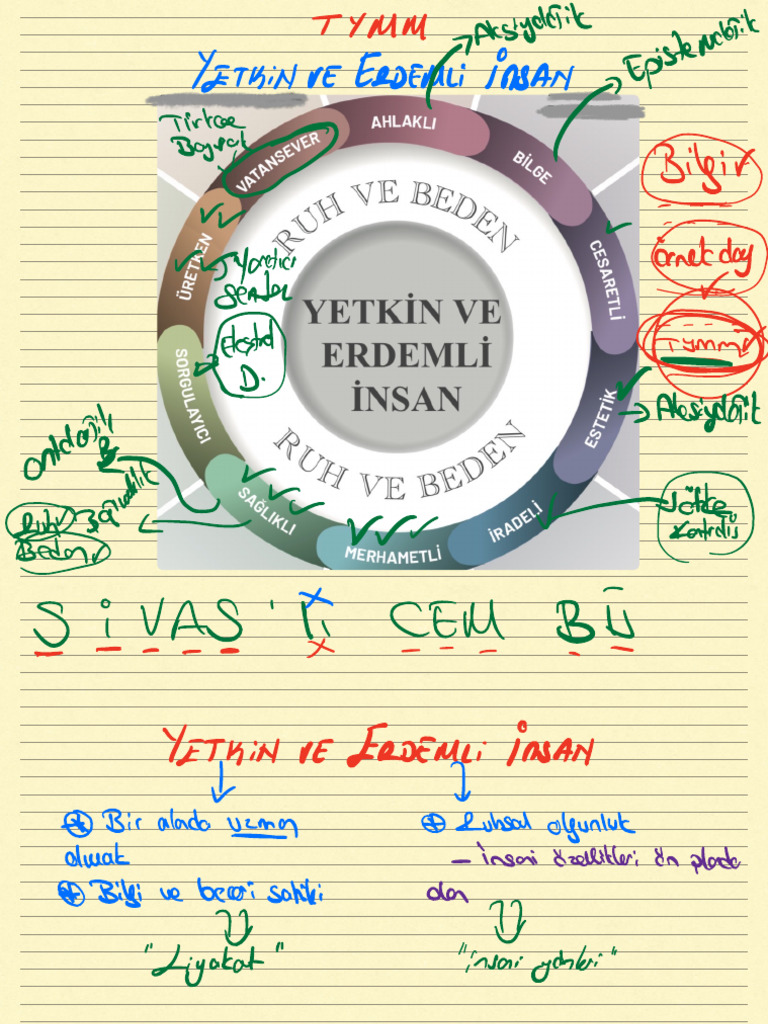 TYMM
YETKİN VE ERDEMLİ İNSAN
Aksiyolojik
Epistemolojik
Türkçe
Bayrak
VATANSEVER
AHLAKLI
BİLGE
Bilgi
CESARETLİ
örnek
TYMM
ÜRETKEN
RUH VE BEDEN
YETKİN VE
ERDEMLİ
İNSAN
RUH VE BEDEN
Eleştirel
D.
SORGULAYICI
ESTETİK
Aksiyolojik
Ontolojik
B
Ruh
Beden
SAĞLIKLI
MERHAMETLİ
İRADELİ
Öfke
Kontrolü
SİVAS'lı CEM BÜ
YETKİN VE ERDEMLİ İNSAN
Bir alada uzman
olmak
Bilgi ve beceri sahibi
"Liyakat"
Ruhsal olgunluk
- İnsani özellikleri ön planda
olan
"insani yönleri"